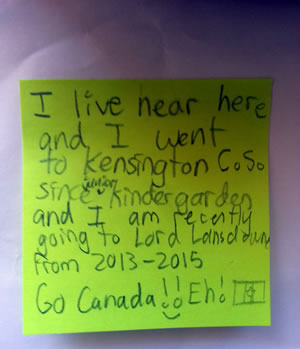 I live near here
and I went
to Kensington C.S.
since junior kindergarden
and I am recently
going to Lord Lansdowne
from 2013-2015
Go Canada!! Eh!